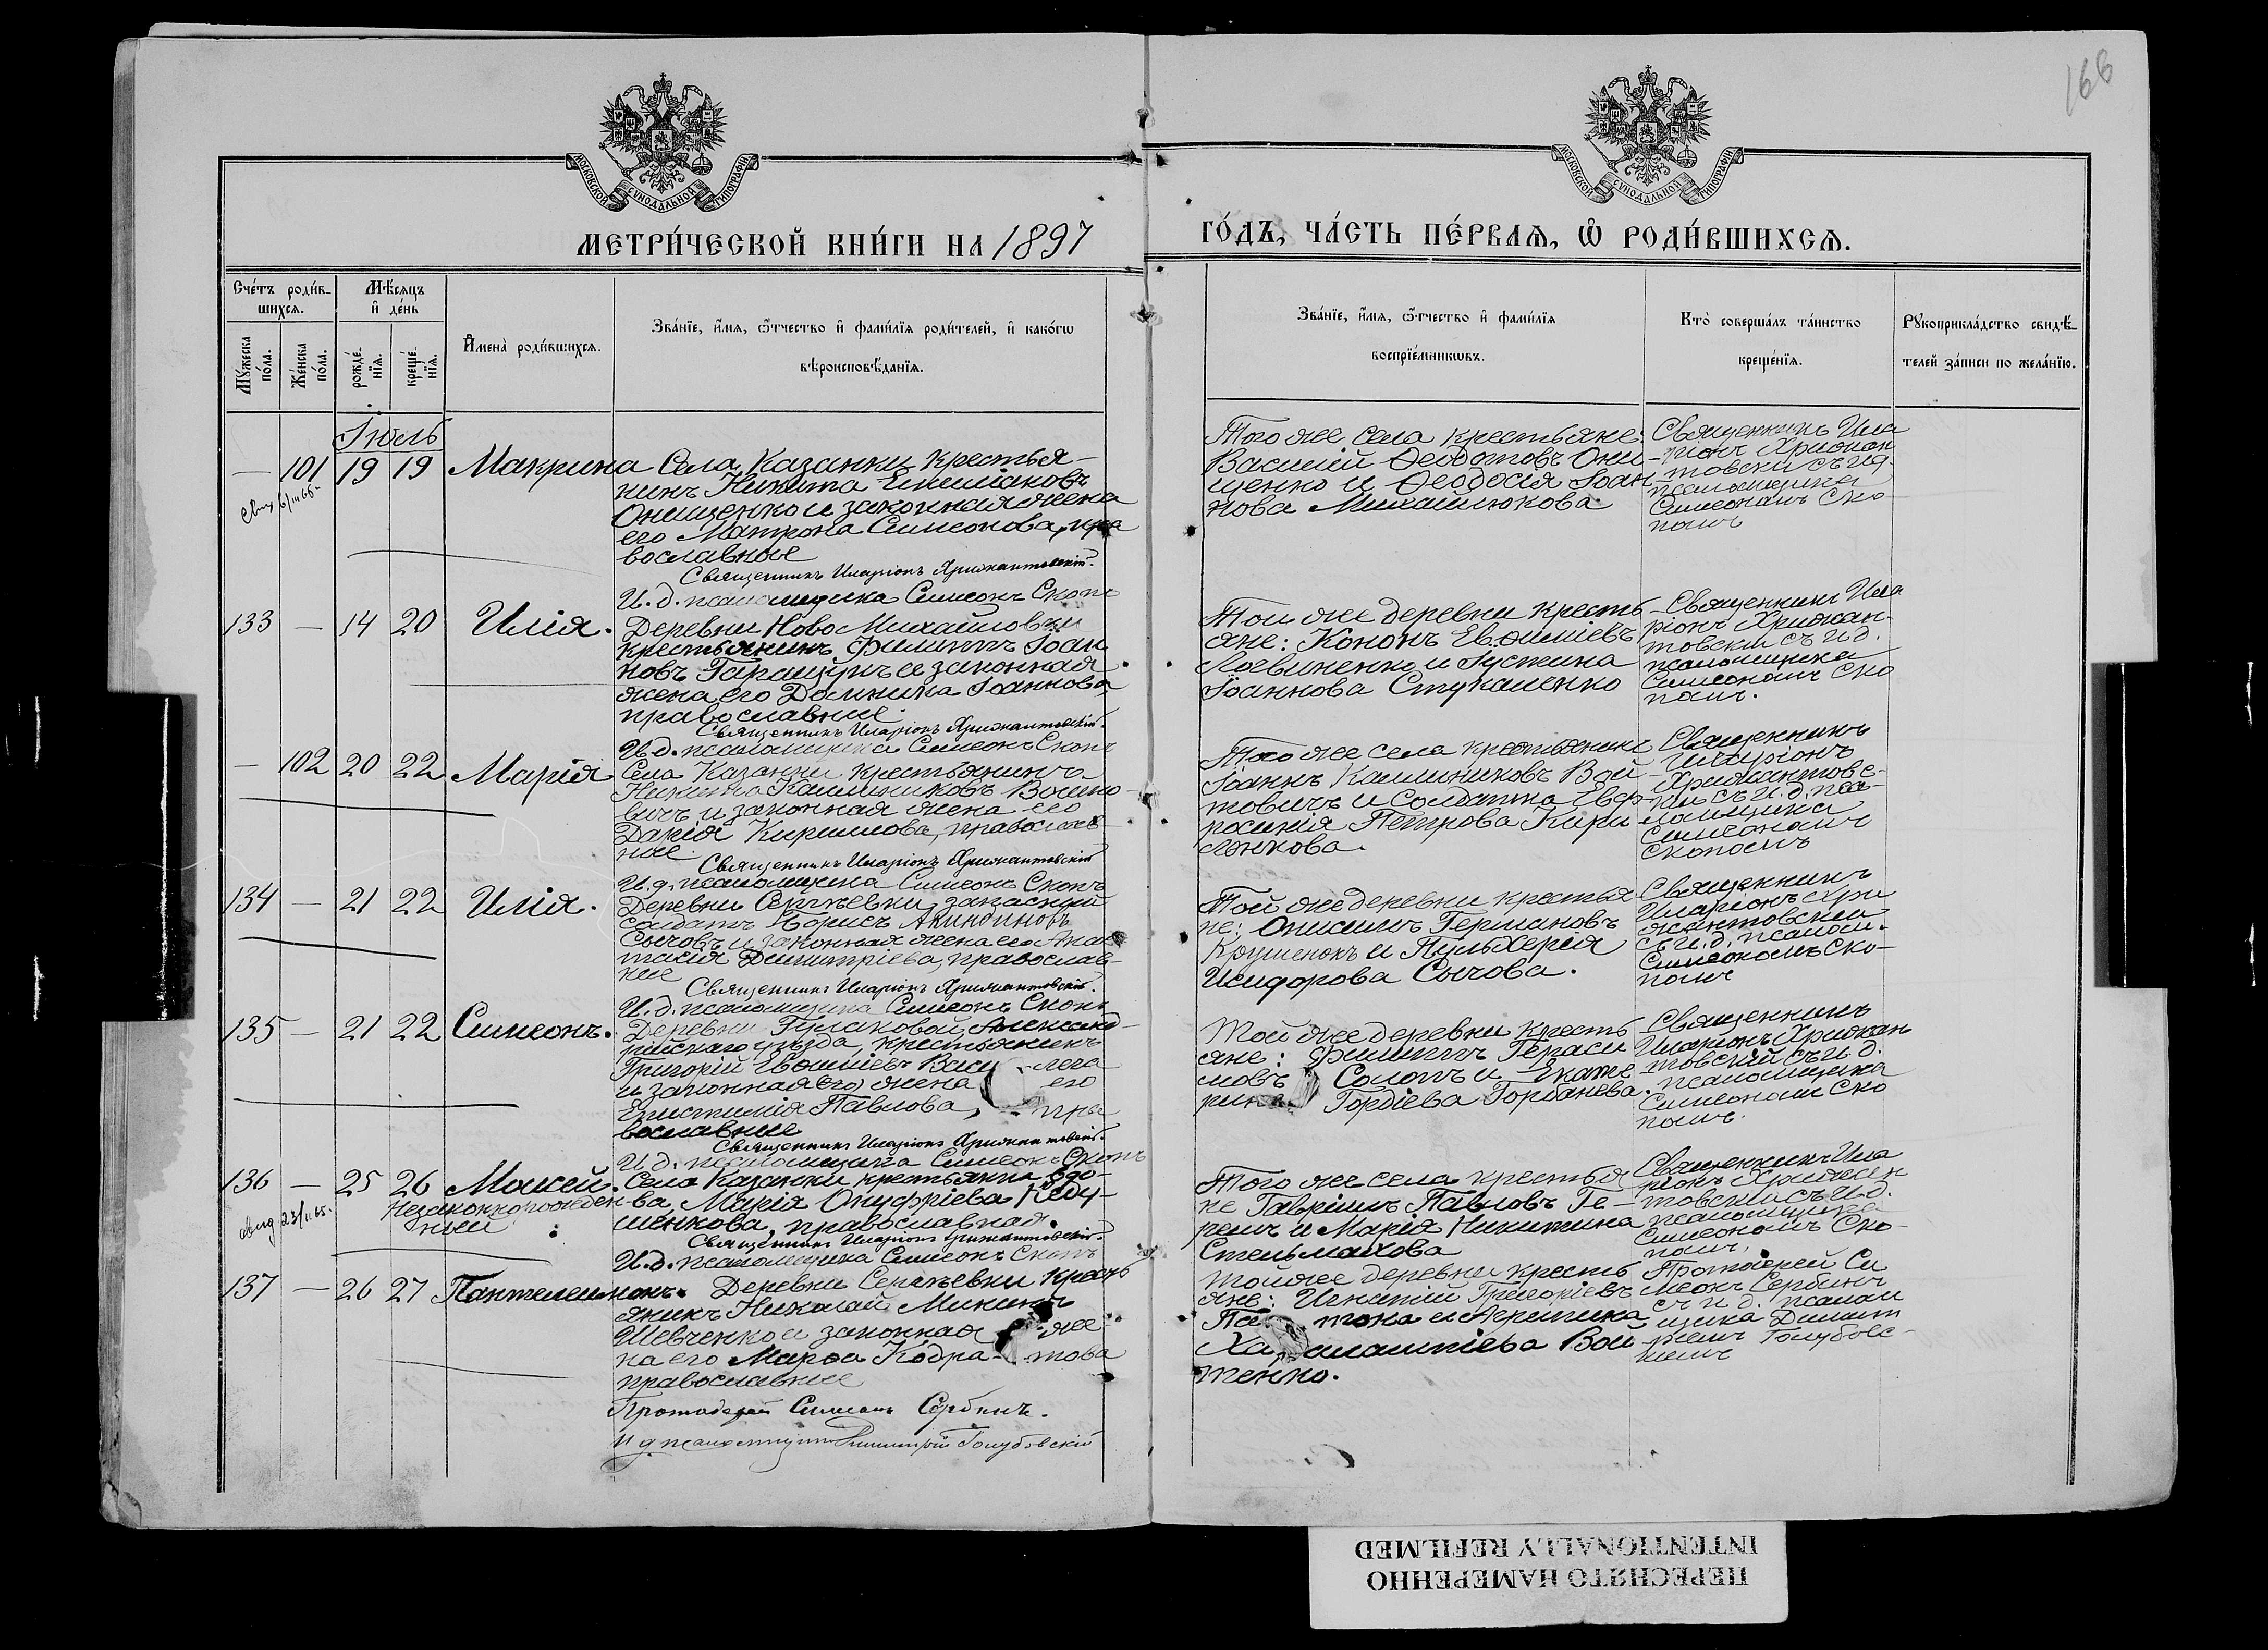 166
МОСКОВСКОЙ СУНОДАЛЬНОЙ ТИПОГРАФІИ
МОСКОВСКОЙ СУНОДАЛЬНОЙ ТИПОГРАФІИ
МЕТРИ́ЧЕСКОЙ КНИ́ГИ НА 1897
ГО́ДЪ, ЧА́СТЬ ПЕ́РВАѦ, Ѡ РОДИ́ВШИХСѦ.
Сче́тъ роди́в-
шихсѧ.
Мꙋ́жеска по́ла.
Же́нска по́ла.
Мѣ́сѧцъ
и҆ де́нь
рожде́-
нїѧ.
креще́-
нїѧ.
И҆мена̀ роди́вшихсѧ.
Зва́нїе, и҆́мѧ, ѻ҆́тчество и҆ фами́лїѧ роди́телей, и҆ како́гѡ
вѣроисповѣ́данїѧ.
Зва́нїе, и҆́мѧ, ѻ҆́тчество и҆ фами́лїѧ
воспрїе́мникѡвъ.
Кто̀ соверша́лъ та́инство
креще́нїѧ.
Рꙋкоприкла́дство свидѣ́-
телей за́писи по жела́нїю.
Іюль
— 101 19 19 Макрина
Села Казанки крестья-
нинъ Никита Емеліановъ
Онищенко и законная жена
его Матрона Симеонова, пра
вославные
Священникъ Иларіонъ Хрижантовскій.
И. д. псаломщика Симеонъ Скопъ
Того же села крестьяне:
Василій Ѳеодотовъ Они-
щенко и Ѳеодосія Іоан-
нова Михайлюкова.
Священникъ Ила
ріонъ Хрижан
товски съ и д.
псаломщика
Симеономъ Ско
помъ
133 — 14 20 Илія.
Деревни Ново Михайловки
крестьянинъ Филиппъ Іоан
новъ Таращукъ и законная
жена его Домникa Іоаннова
православные.
Священникъ Иларіонъ Хрижантовскій.
И. д. псаломщика Симеонъ Скопъ
Той же деревни кресть
яне: Кононъ Евѳиміевъ
Логвиненко и Іустина
Іоаннова Стукаленко
Священникъ Ила
ріонъ Хрижан-
товски съ и д.
псаломщика
Симеономъ Ско
помъ.
— 102 20 22 Марія
Села Казанки крестьянинъ
Никита Калиниковъ Войто-
вичъ и законная жена его
Дарія Кириллова, православ-
ные.
Священникъ Иларіонъ Хрижантовскій
И. д. псаломщика Симеонъ Скопъ
Того же села крестьянинъ
Іоаннъ Калиниковъ Вой-
товичъ и солдатка Евф-
росинія Петрова Кири
ленкова.
Священникъ
Иларіонъ
Хрижантовс-
ки съ и. д. пса-
ломщика
Симеономъ
Скопомъ
134 — 21 22 Илія.
Деревни Сергѣевки запасный
солдатъ Борисъ Акиндиновъ
Сычовъ и законная жена его Анас
тасія Димитріева, православ-
ные
Священникъ Иларіонъ Хрижантовскій.
И. д. псаломщика Симеонъ Скопъ
Той же деревни крестья
не: Онисимъ Германовъ
Крушенокъ и Пульхерія
Исидорова Сычова.
Священникъ
Иларіонъ Хри
жантовскій
съ и. д. псалом.
Симеономъ Ско-
помъ
135 — 21 22 Симеонъ.
Деревни Гулаковой, Александ-
рійскаго уѣзда, крестьянинъ
Григорій
и законная его жена его
Павлова, пра
вославные
Священникъ Иларіонъ Хрижантовскій.
И д. псаломщика Симеонъ Скопъ
Той же деревни кресть
яне: Филиппъ Гераси
мовъ Солопъ и Екате
рина Гордіева Горбанева.
Священникъ
Иларіонъ Хрижан
товскій съ и д.
псаломщика
Симеономъ Ско
помъ.
136 — 25 26 Моисей.
Незаконнорожден-
ный
Села Казанки крестьянка вдо-
ва, Марія Онуфріева
православная.
Священникъ Иларіонъ Хрижантовскій.
И. д. псаломщика Симеонъ Скопъ
Того же села крестья
не Гавріилъ Павловъ Ге-
решъ и Марія Никитина
Стельмахова
Священникъ Ила
ріонъ Хрижан
товски съ и. д.
псаломщика
Симеономъ Ско-
помъ.
137 — 26 27 Пантелеимонъ.
Деревни Сергѣевки кресть
янинъ Николай Мининъ
Шевченко и законная же
на его Марѳа Кодра-това
православные
Протоіерей Симеонъ Сербинъ.
И д псаломщика Димитрій Голубовскій
Той же деревни кресть
яне: Игнатій Григоріевъ
и Агрипина
Вой
тенко.
Протоіерей Си
меонъ Сербинъ
съ и д. псалом
щика Димит
ріемъ Голубовс-
кимъ
ПЕРЕСНЯТО НАМЕРЕННО
INTENTIONALLY REFILMED